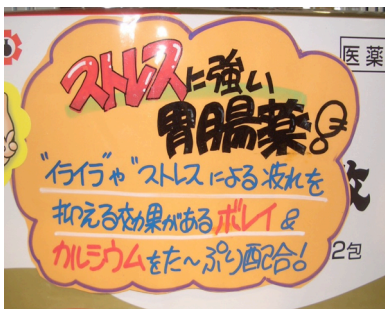 ストレスに強い
胃腸薬!
"イライラ"や"ストレスによる疲れを
抑える効果があるボレイ&
カルシウムをた〜ぷり配合!
医薬
2包